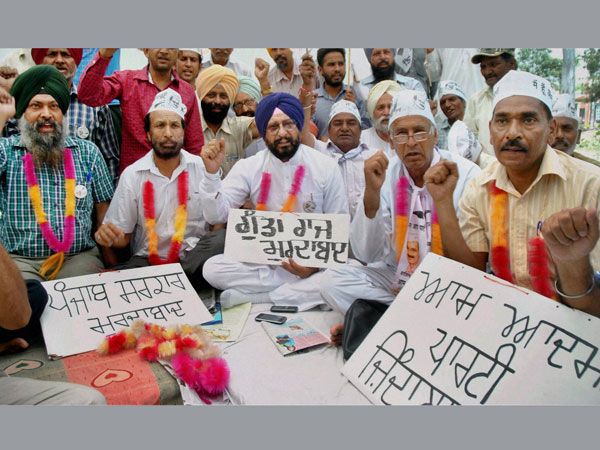 ਪੰਜਾਬ ਸਰਕਾਰ
ਮੁਰਦਾਬਾਦ
ਗੁੰਡਾ ਰਾਜ
ਮੁਰਦਾਬਾਦ
ਆਮ ਆਦਮੀ
ਪਾਰਟੀ
ਜ਼ਿੰਦਾਬਾਦ